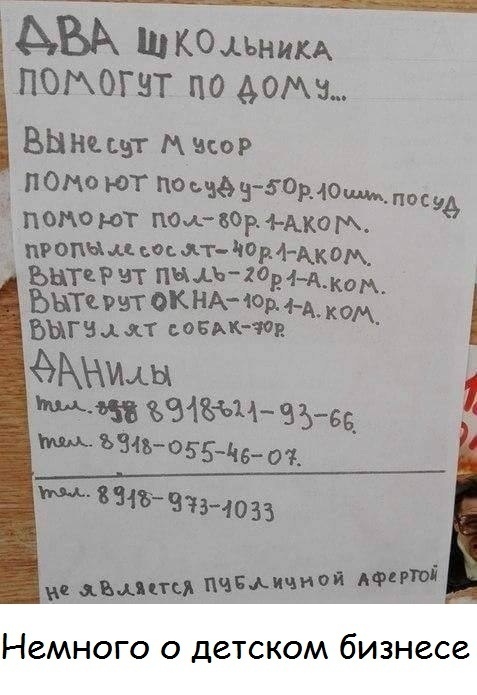 ДВА ШКОЛЬНИКА
ПОМОГУТ ПО ДОМУ...
ВЫНЕСУТ МУСОР
ПОМОЮТ ПОСУДУ-50р.10шт. ПОСУД
ПОМОЮТ ПОЛ-80р.1-АКОМ.
ПРОПЫЛЕСОСЯТ-40р.1-АКОМ.
ВЫТЕРУТ ПЫЛЬ-20р.1-А.КОМ.
ВЫТЕРУТ ОКНА-10р.1-А.КОМ.
ВЫГУЛЯТ СОБАК-70р.
ДАНИЛЫ
тел. 8918-621-93-66.
тел. 8918-055-46-07.
тел. 8918-973-1033
не является публичной афертой
Немного о детском бизнесе